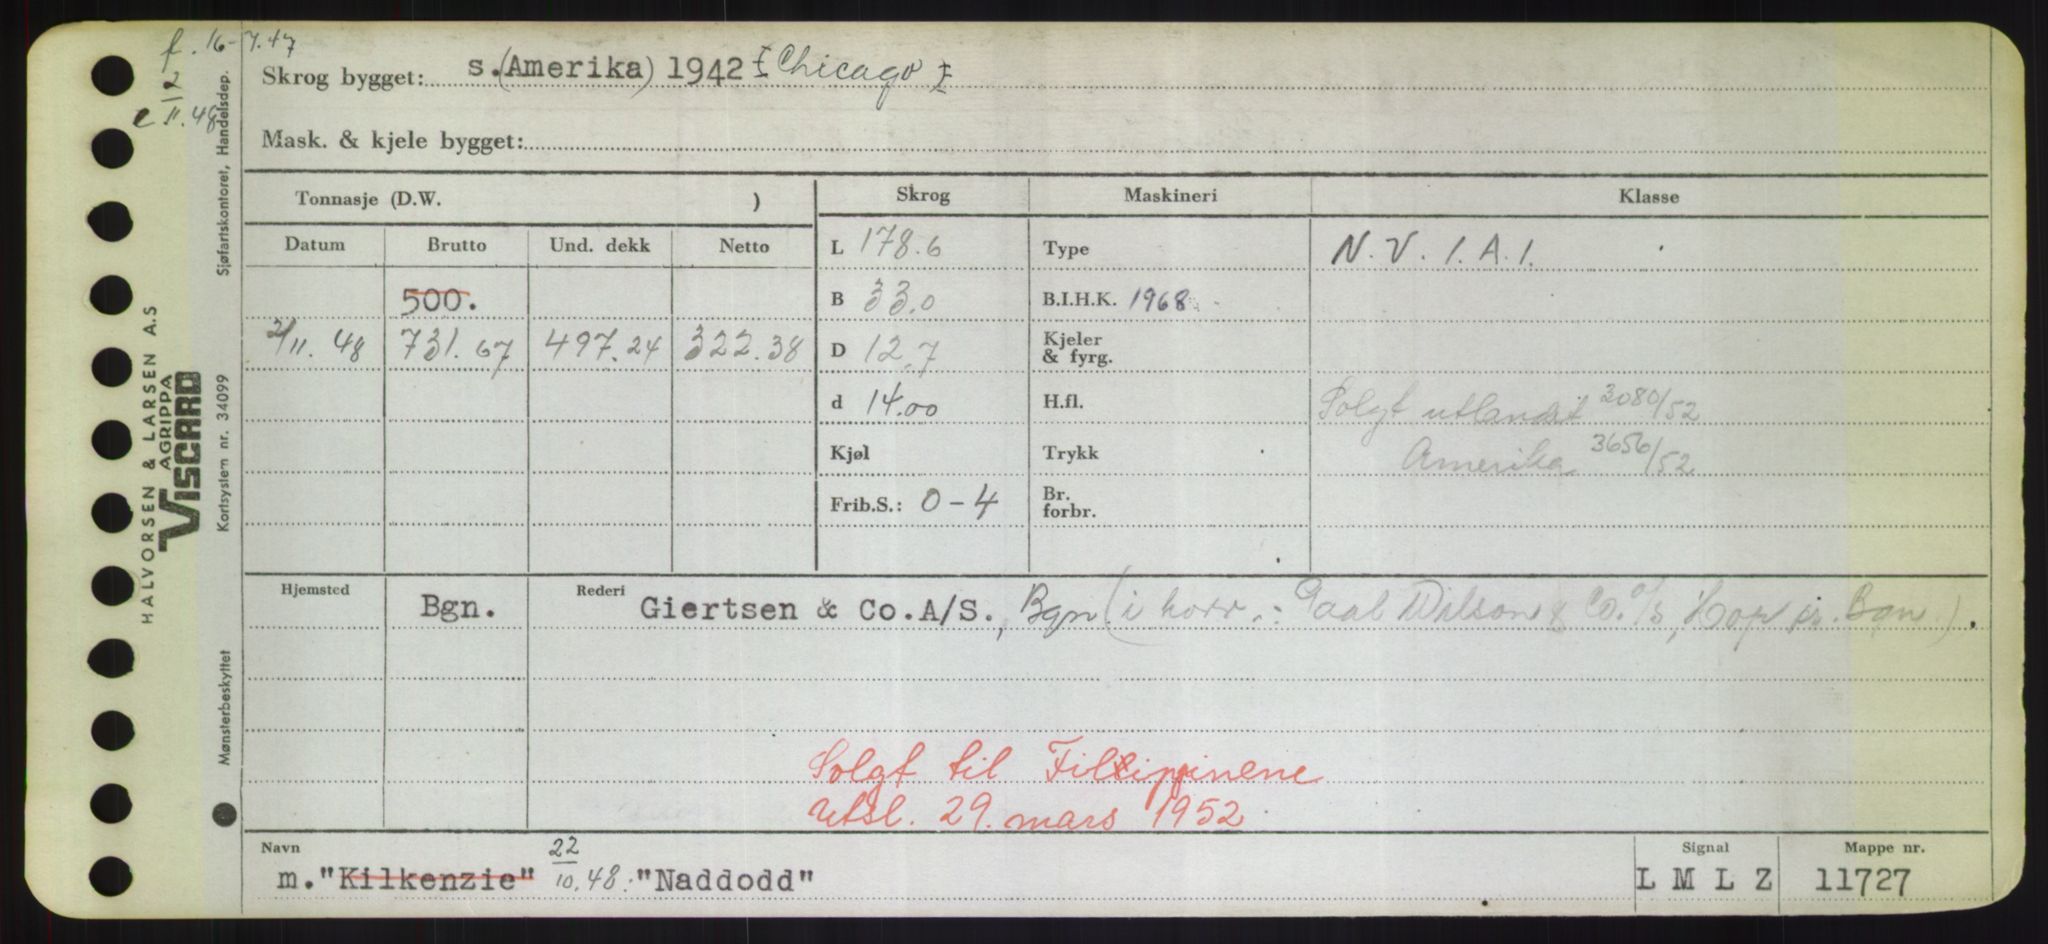 f. 16-7.47
2
e 11.48
Skrog bygget: s.(Amerika) 1942 I Chicago I
Mask. & kjele bygget:
Tonnasje (D.W. )
Skrog
Maskineri
Klasse
Datum Brutto Und. dekk Netto
L 178.6
Type
N.V. 1.A.1.
500.
B 33.0
B.I.H.K. 1968
2/11. 48 731.67 497.24 322.38
D 12.7
Kjeler
& fyrg.
d 14.00
H.fl.
Solgt utlandet 2080/52
Kjøl
Trykk
Amerika 3656/52
Frib.S.: 0-4
Br.
forbr.
Hjemsted Bgn.
Rederi Giertsen & Co.A/S., Bgn (i korr.: Paal Wilson & Co. A/S, Hop pr. Bgn.).
Solgt til Filippinene
Utsl. 29. mars 1952
Navn
m."Kilkenzie" 22/10.48: "Naddodd"
Signal
L M L Z
Mappe nr.
11727
HALVORSEN & LARSEN A.S
AGRIPPA
VISCARD
Mønsterbeskyttet
Kortsystem nr. 34099
Sjøfartskontoret, Handelsdep.